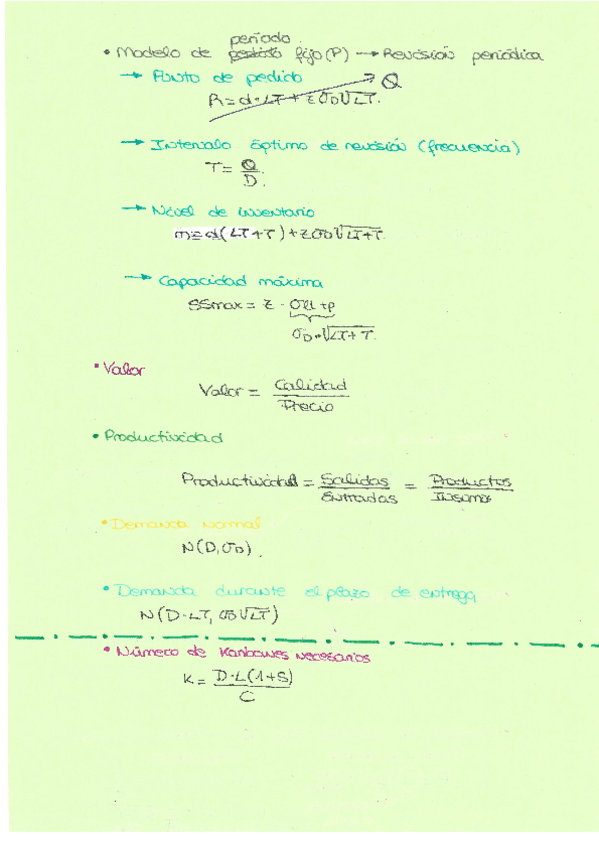 período
• Modelo de período fijo (P) → Revisión periódica
→ Punto de pedido
Q
R = d·LT + zσD√LT.
→ Intervalo óptimo de revisión (frecuencia)
T = Q/D.
→ Nivel de inventario
m = d(LT+T) + zσD√LT+T.
→ Capacidad máxima
SSmax = z · σLt+p
σD·√LT+T.
• Valor
Valor = Calidad/Precio
• Productividad
Productividad = Salidas/Entradas = Productos/Insumos
• Demanda normal
N(D,σD).
• Demanda durante el plazo de entrega
N(D·LT, σD√LT)
• Número de Kanbanes necesarios
K = D·L(1+S)/C